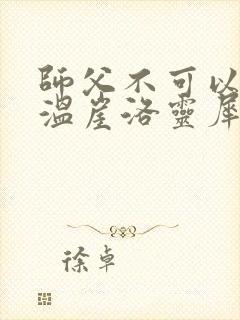 師父不可以
溫崖洛靈犀
徐卓